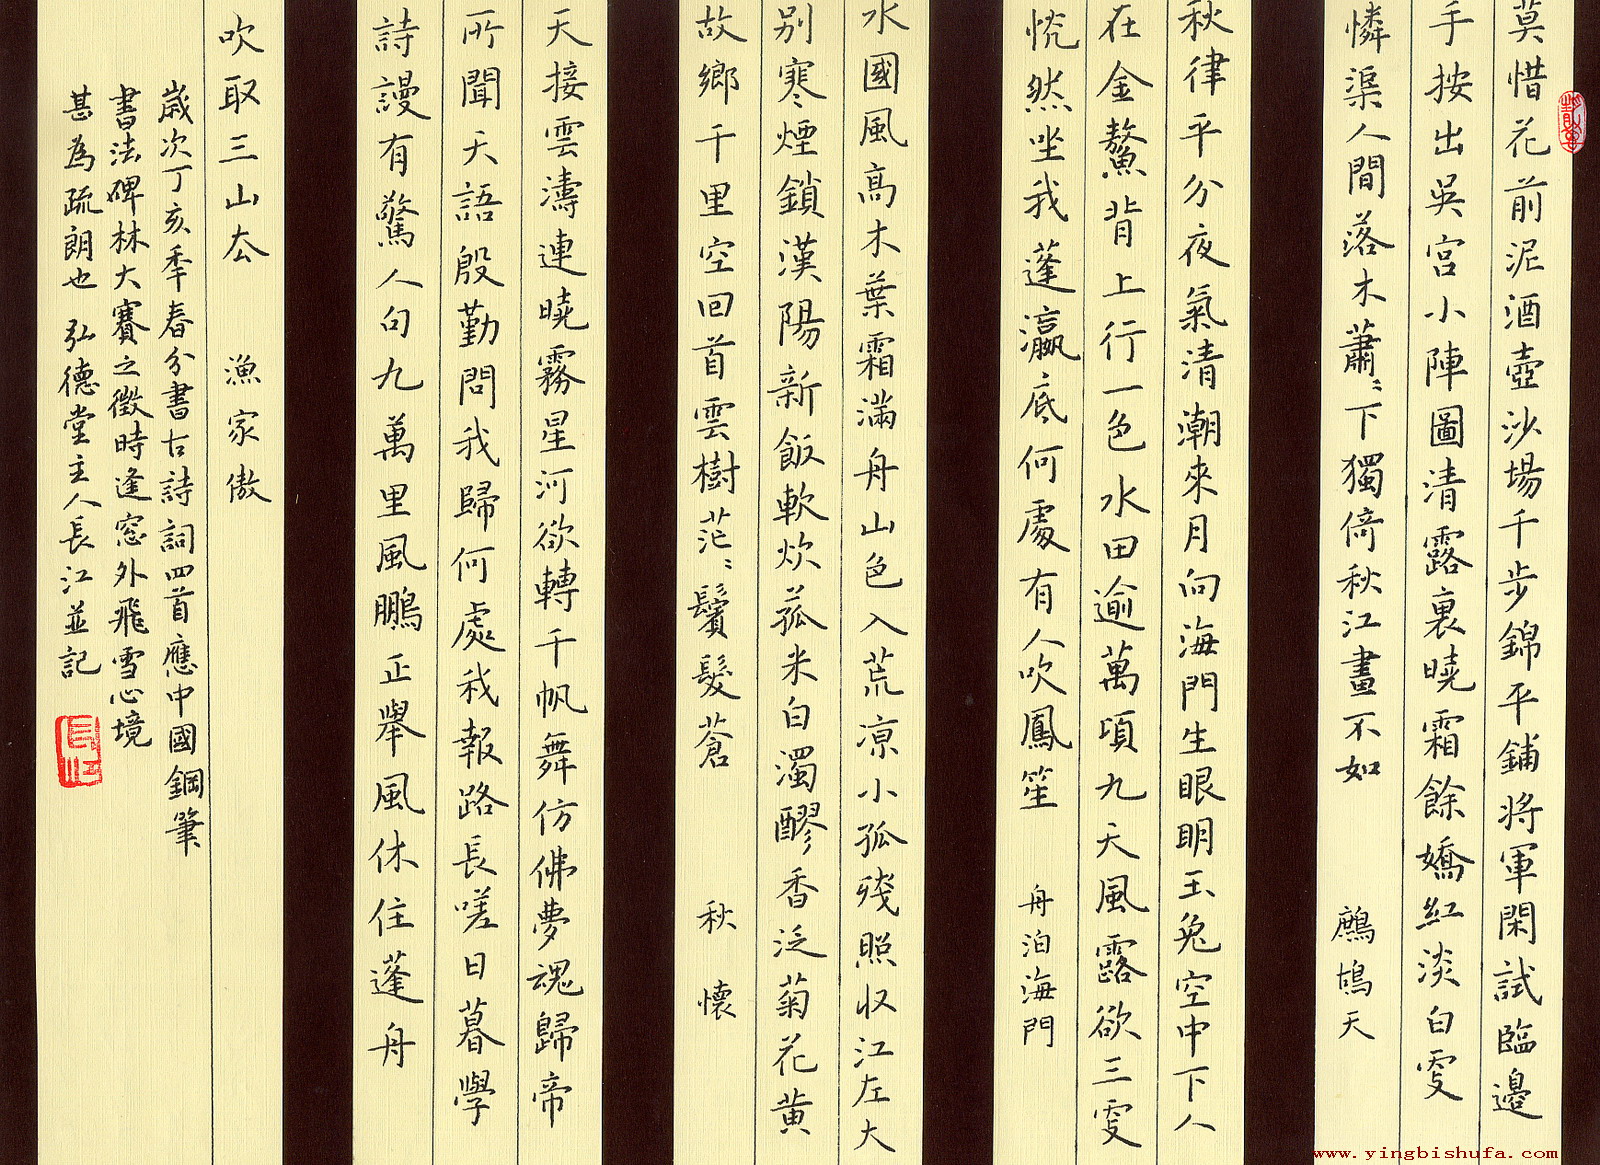 莫惜花前泥酒壺沙場千步錦平鋪將軍閑試臨邊
手按出吳宮小陣圖清露裏曉霜餘嬌紅淡白雯
憐渠人間落木蕭〻下獨倚秋江畫不如 鷓鴣天
秋律平分夜氣清潮來月向海門生眼明玉兔空中下人
在金鰲背上行一色水田逾萬頃九天風露欲三雯
恍然坐我蓬瀛底何處有人吹鳳笙 舟泊海門
水國風高木葉霜滿舟山色入荒涼小孤殘照收江左大
別寒煙鎖漢陽新飯軟炊菰米白濁醪香泛菊花黃
故鄉千里空回首雲樹茫〻鬢髮蒼 秋懷
天接雲濤連曉霧星河欲轉千帆舞仿佛夢魂歸帝
所聞天語殷勤問我歸何處我報路長嗟日暮學
詩謾有驚人句九萬里風鵬正舉風休住蓬舟
吹取三山去 漁家傲
歲次丁亥年春分書古詩詞四首應中國鋼筆
書法碑林大賽之徵時逢窓外飛雪心境
甚為疏朗也 弘德堂主人長江並記
長江
www.yingbishufa.com